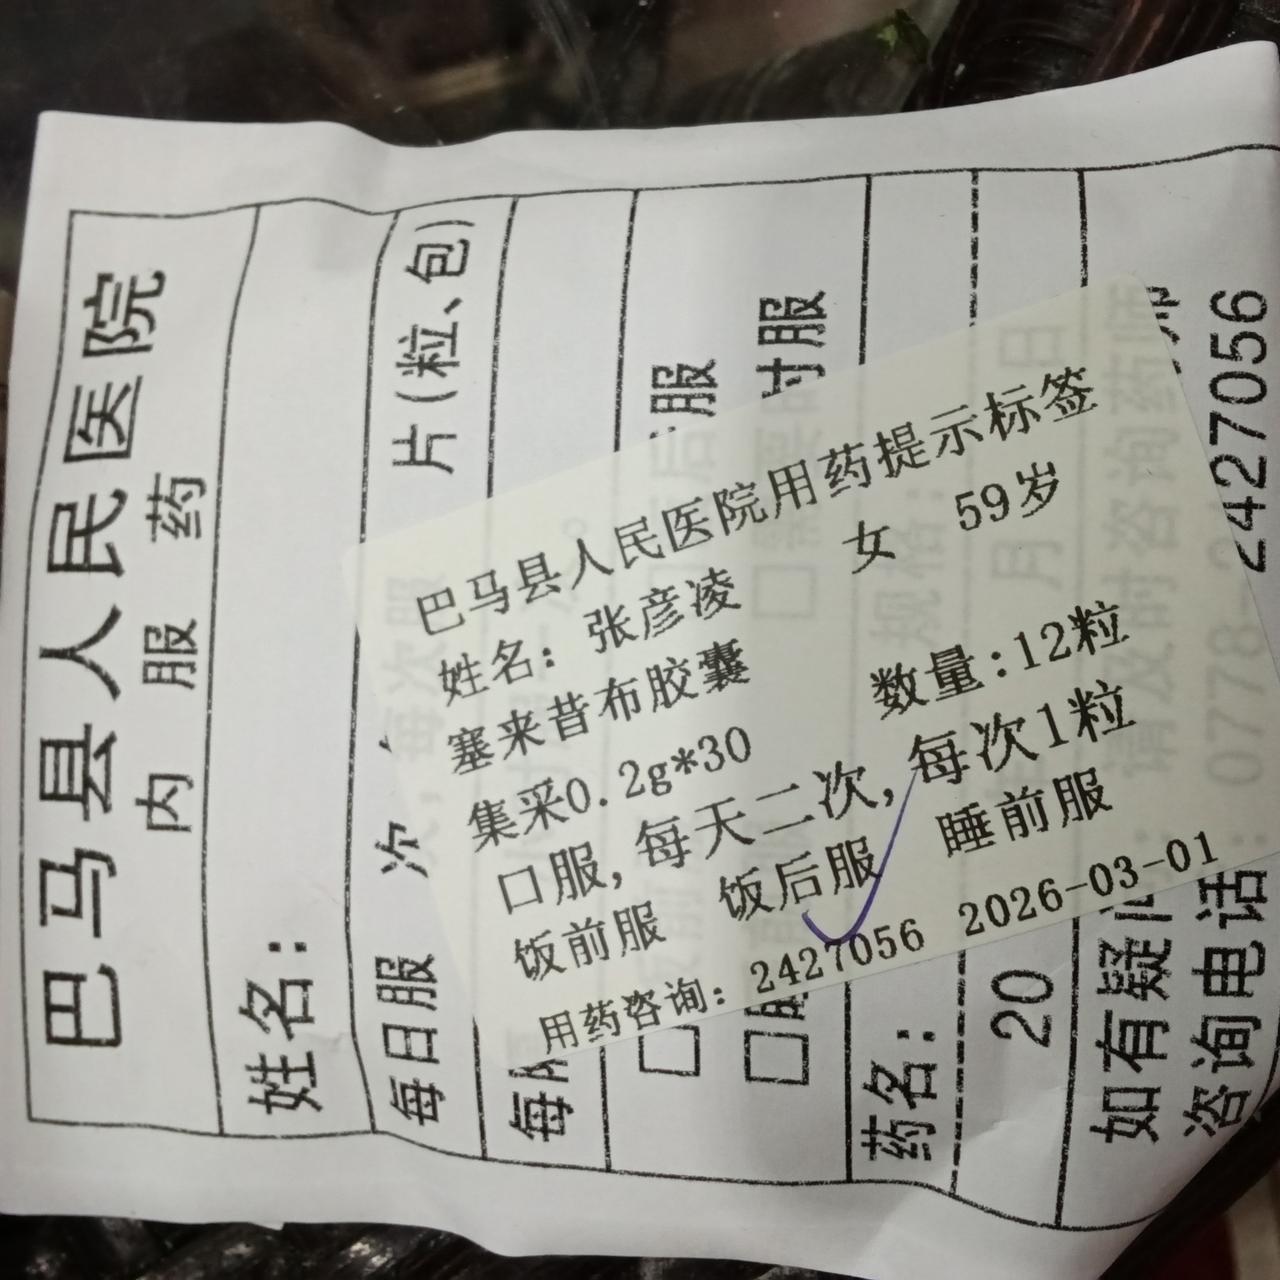 巴马县人民医院
内 服 药
姓名：
每日服 次 片(粒、包)
每
服
时服
药名：
20
如有疑
咨询电话：0778-2427056
巴马县人民医院用药提示标签
姓名： 张彦凌 女 59岁
塞来昔布胶囊
集采0.2g*30 数量:12粒
口服, 每天二次, 每次1粒
饭前服 饭后服 睡前服
用药咨询: 2427056 2026-03-01